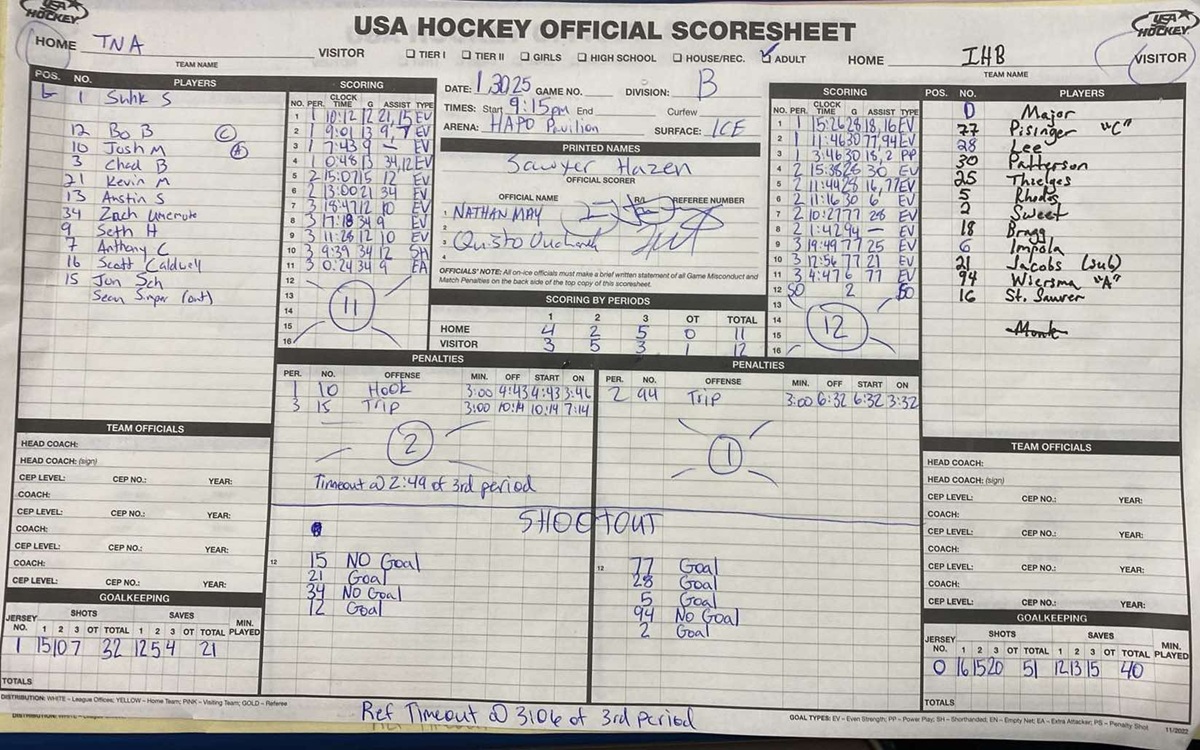 USA HOCKEY
USA HOCKEY OFFICIAL SCORESHEET
USA HOCKEY
HOME TNA VISITOR
TEAM NAME
☐ TIER I ☐ TIER II ☐ GIRLS ☐ HIGH SCHOOL ☐ HOUSE/REC. ☑ ADULT
HOME IHB VISITOR
TEAM NAME
POS. NO. PLAYERS
1 Suhk S
12 Bo B (C)
10 Josh M (A)
3 Chad B
21 Kevin M
13 Austin S
34 Zach
9 Seth H
7 Anthony C
16 Scott Caldwell
15 Jon Sch
Sean (out)
SCORING
NO. PER. CLOCK TIME G ASSIST TYPE
1 1 10:12 12 21, 15 EV
2 1 9:01 13 9, 7 EV
3 1 7:43 9 - EV
4 1 0:48 13 34, 12 EV
5 2 15:07 15 12 EV
6 2 13:00 21 34 EV
7 3 18:47 12 10 EV
8 3 17:18 34 9 EV
9 3 11:28 12 10 EV
10 3 9:39 34 12 SH
11 3 0:24 34 9 EA
12
13
14
15
16
11
DATE: 1.30.25 GAME NO. DIVISION: B
TIMES: Start 9:15pm End Curfew
ARENA: HAPO Pavilion SURFACE: ICE
PRINTED NAMES
Sawyer Hazen
OFFICIAL SCORER
OFFICIAL NAME R/L REFEREE NUMBER
1 NATHAN MAY
2
3 Quisto
4
OFFICIALS' NOTE: All on-ice officials must make a brief written statement of all Game Misconduct and
Match Penalties on the back side of the top copy of this scoresheet.
SCORING BY PERIODS
1 2 3 OT TOTAL
HOME 4 2 5 0 11
VISITOR 3 5 3 1 12
SCORING
NO. PER. CLOCK TIME G ASSIST TYPE
1 1 15:26 28 18, 16 EV
2 1 11:46 30 77, 94 EV
3 1 3:46 30 18, 2 PP
4 2 15:38 26 30 EV
5 2 11:44 28 16, 77 EV
6 2 11:16 30 6 EV
7 2 10:27 77 28 EV
8 2 1:42 94 - EV
9 3 19:49 77 25 EV
10 3 12:56 77 21 EV
11 3 4:47 6 77 EV
12 SO 2 SO
13
14
15
16
12
POS. NO. PLAYERS
0 Major
77 Pisinger "C"
28 Lee
30 Patterson
25 Thielges
5 Rhods
2 Sweet
18 Bragg
6 Impola
21 Jacobs (sub)
94 Wiersma "A"
16 St. Saurer
Monk
PENALTIES
PER. NO. OFFENSE MIN. OFF START ON
1 10 Hook 3:00 4:43 4:43 3:46
3 15 Trip 3:00 10:14 10:14 7:14
2
Timeout @ 2:49 of 3rd period
PENALTIES
PER. NO. OFFENSE MIN. OFF START ON
2 94 Trip 3:00 6:32 6:32 3:32
1
SHOOTOUT
12
15 NO Goal
21 Goal
34 NO Goal
12 Goal
12
77 Goal
28 Goal
5 Goal
94 No Goal
2 Goal
TEAM OFFICIALS
HEAD COACH:
HEAD COACH: (sign)
CEP LEVEL: CEP NO.: YEAR:
COACH:
CEP LEVEL: CEP NO.: YEAR:
COACH:
CEP LEVEL: CEP NO.: YEAR:
COACH:
CEP LEVEL: CEP NO.: YEAR:
GOALKEEPING
JERSEY NO. SHOTS SAVES MIN. PLAYED
1 2 3 OT TOTAL 1 2 3 OT TOTAL
1 15 10 7 32 12 5 4 21
TOTALS
TEAM OFFICIALS
HEAD COACH:
HEAD COACH: (sign)
CEP LEVEL: CEP NO.: YEAR:
COACH:
CEP LEVEL: CEP NO.: YEAR:
COACH:
CEP LEVEL: CEP NO.: YEAR:
COACH:
CEP LEVEL: CEP NO.: YEAR:
GOALKEEPING
JERSEY NO. SHOTS SAVES MIN. PLAYED
1 2 3 OT TOTAL 1 2 3 OT TOTAL
0 16 15 20 51 12 13 15 40
TOTALS
DISTRIBUTION: WHITE – League Offices; YELLOW – Home Team; PINK – Visiting Team; GOLD – Referee
Ref Timeout @ 3:06 of 3rd period
GOAL TYPES: EV – Even Strength; PP – Power Play; SH – Shorthanded, EN – Empty Net; EA – Extra Attacker; PS – Penalty Shot
11/2022